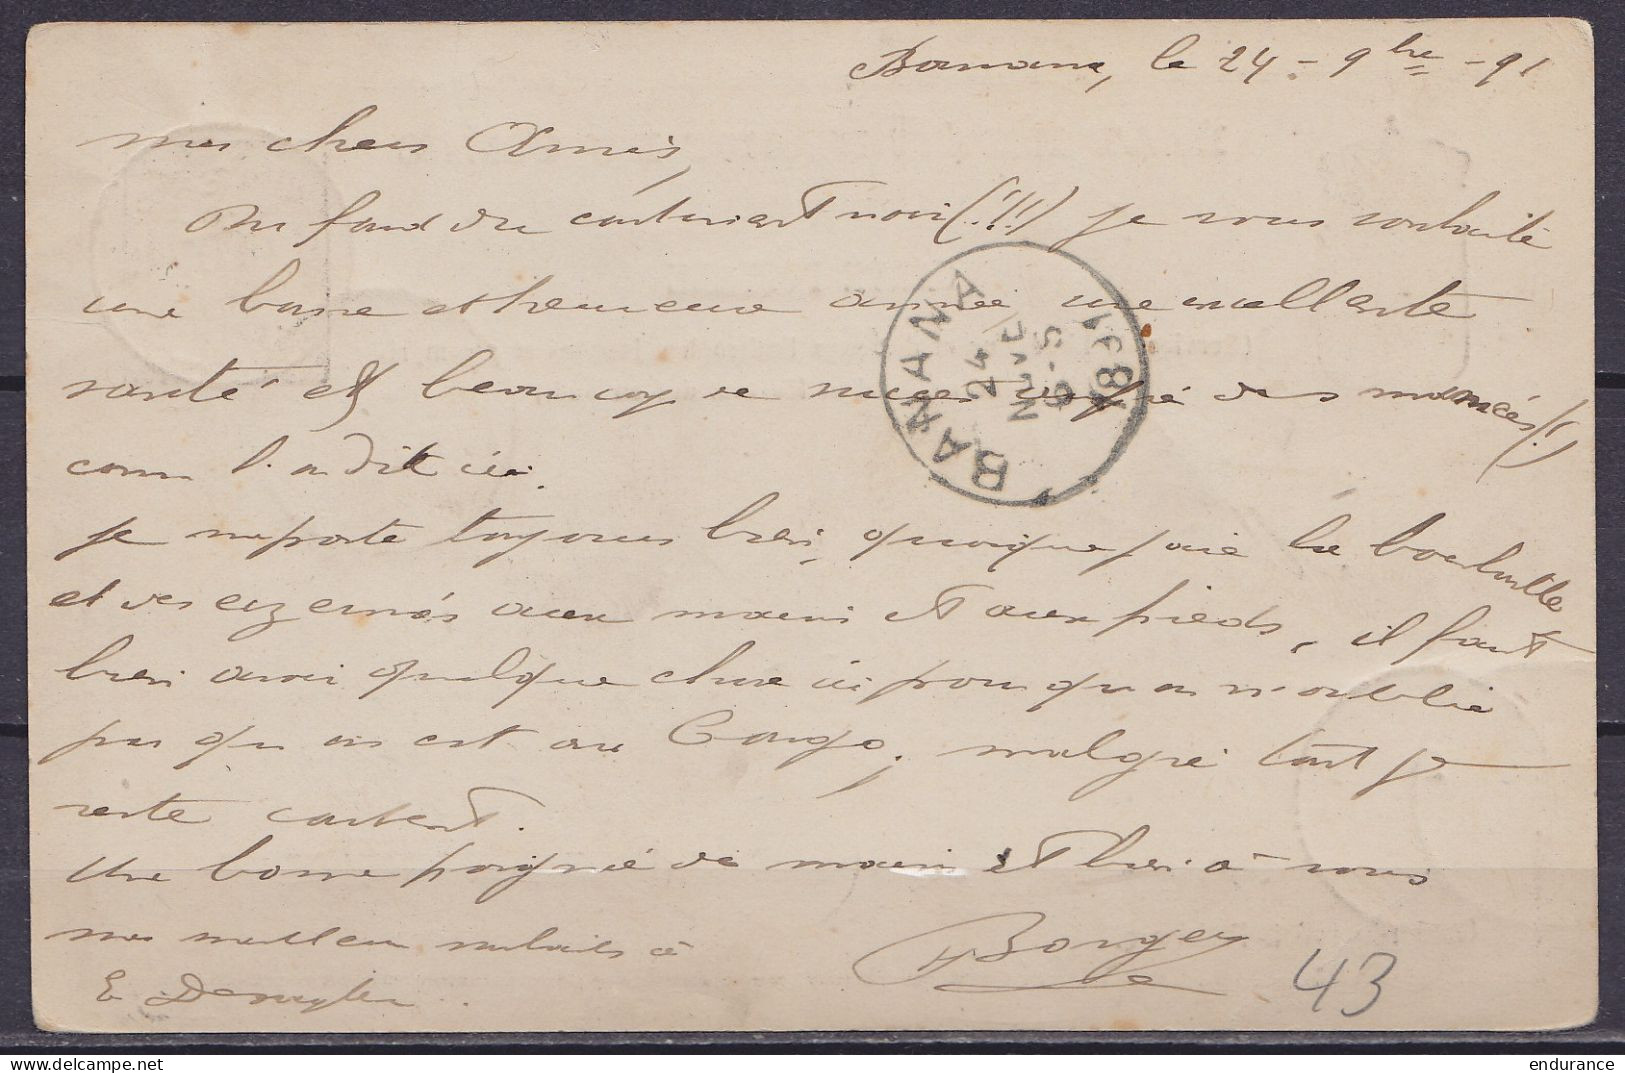 Banana, le 24 - 9bre - 91
mes chers Amis,
Du fond du continent noir (!!!) je vous souhaite
une bonne et heureuse année une excellente
santé et beaucoup de succès des
comm l'on dit ici.
je me porte toujours bien, quoique j'aie la bourbouille
et des eczémas aux mains et aux pieds, il faut
bien avoir quelque chose ici pour qu'on n'oublie
pas qu'on est au Congo, malgré tout je
reste content.
Une bonne poignée de main et bien à vous
mes meilleurs souhaits à
E.
BANANA
24
NOVE
6-S
1891
43
delcampe.net
endurance